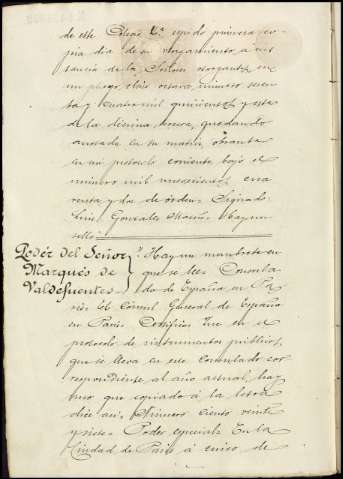 de este Colegio Yo. expido primera co-
pia dia de su otorgamiento, a ins-
tancia de los Señores otorgantes, en
un pliego, clase octava, número seten-
ta y cuatro mil quinientos y este
de la décima tercera, quedando
anotada en su matriz, obrante
en mi protocolo corriente bajo el
número mil novecientos cua
renta y dos de orden. Signado
Luis Gonzalez Hay un
sello
Podér del Señor
Marqués de
Valdefuentes
"Hay un membrete en
que se lee: Consula
do de España en Pa
ris. El Consul General de España
en Paris. Certifica: Que en el
protocolo de instrumentos publicos,
que se lleva en este Consulado cor
respondiente al año actual, hay
uno que copiado á la letra
dice asi. Número ciento veinte
y siete. Poder especial. En la
Ciudad de Paris á cinco de